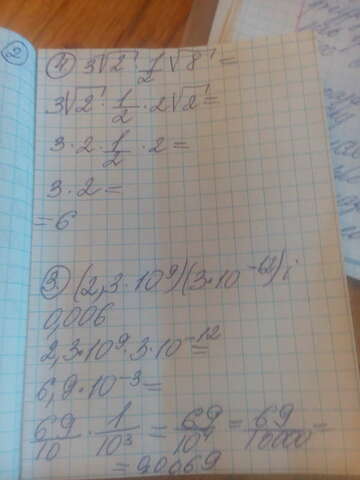 2
4 3√2 · 1/2 √8 =
3√2 · 1/2 · 2√2 =
3 · 2 · 1/2 · 2 =
3 · 2 =
= 6
3. (2,3 · 10⁹)(3 · 10⁻¹²) i
0,006
2,3 · 10⁹ · 3 · 10⁻¹² =
6,9 · 10⁻³ =
69/10 · 1/10³ = 69/10⁴ = 69/10000 =
= 0,0069